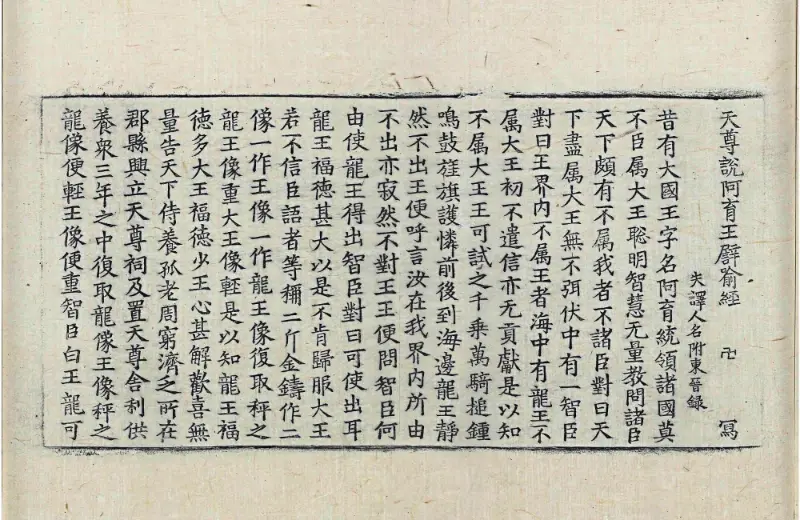 天尊說阿育王譬喻經　卍　寫
失譯人名附東晉錄
昔有大國王字名阿育統領諸國莫
不臣属大王聰明智慧无量教問諸臣
天下頗有不属我者不諸臣對曰天
下盡属大王無不弭伏中有一智臣
對曰王界内不属王者海中有龍王不
属大王初不遣信亦无貢獻是以知
不属大王王可試之千乘萬騎搥鍾
鳴鼓旌旗護憐前後到海邊龍王靜
然不出王便呼言汝在我界内所由
不出亦寂然不對王王便問智臣何
由使龍王得出智臣對曰可使出耳
龍王福徳甚大以是不肯歸服大王
若不信臣語者等稱二斤金鑄作二
像一作王像一作龍王像復取秤之
龍王像重大王像輕是以知龍王福
徳多大王福徳少王心甚解歡喜無
量告天下侍養孤老周窮濟乏所在
郡縣興立天尊祠及置天尊舍利供
養衆三年之中復取龍像王像秤之
龍像便輕王像便重智臣白王龍可